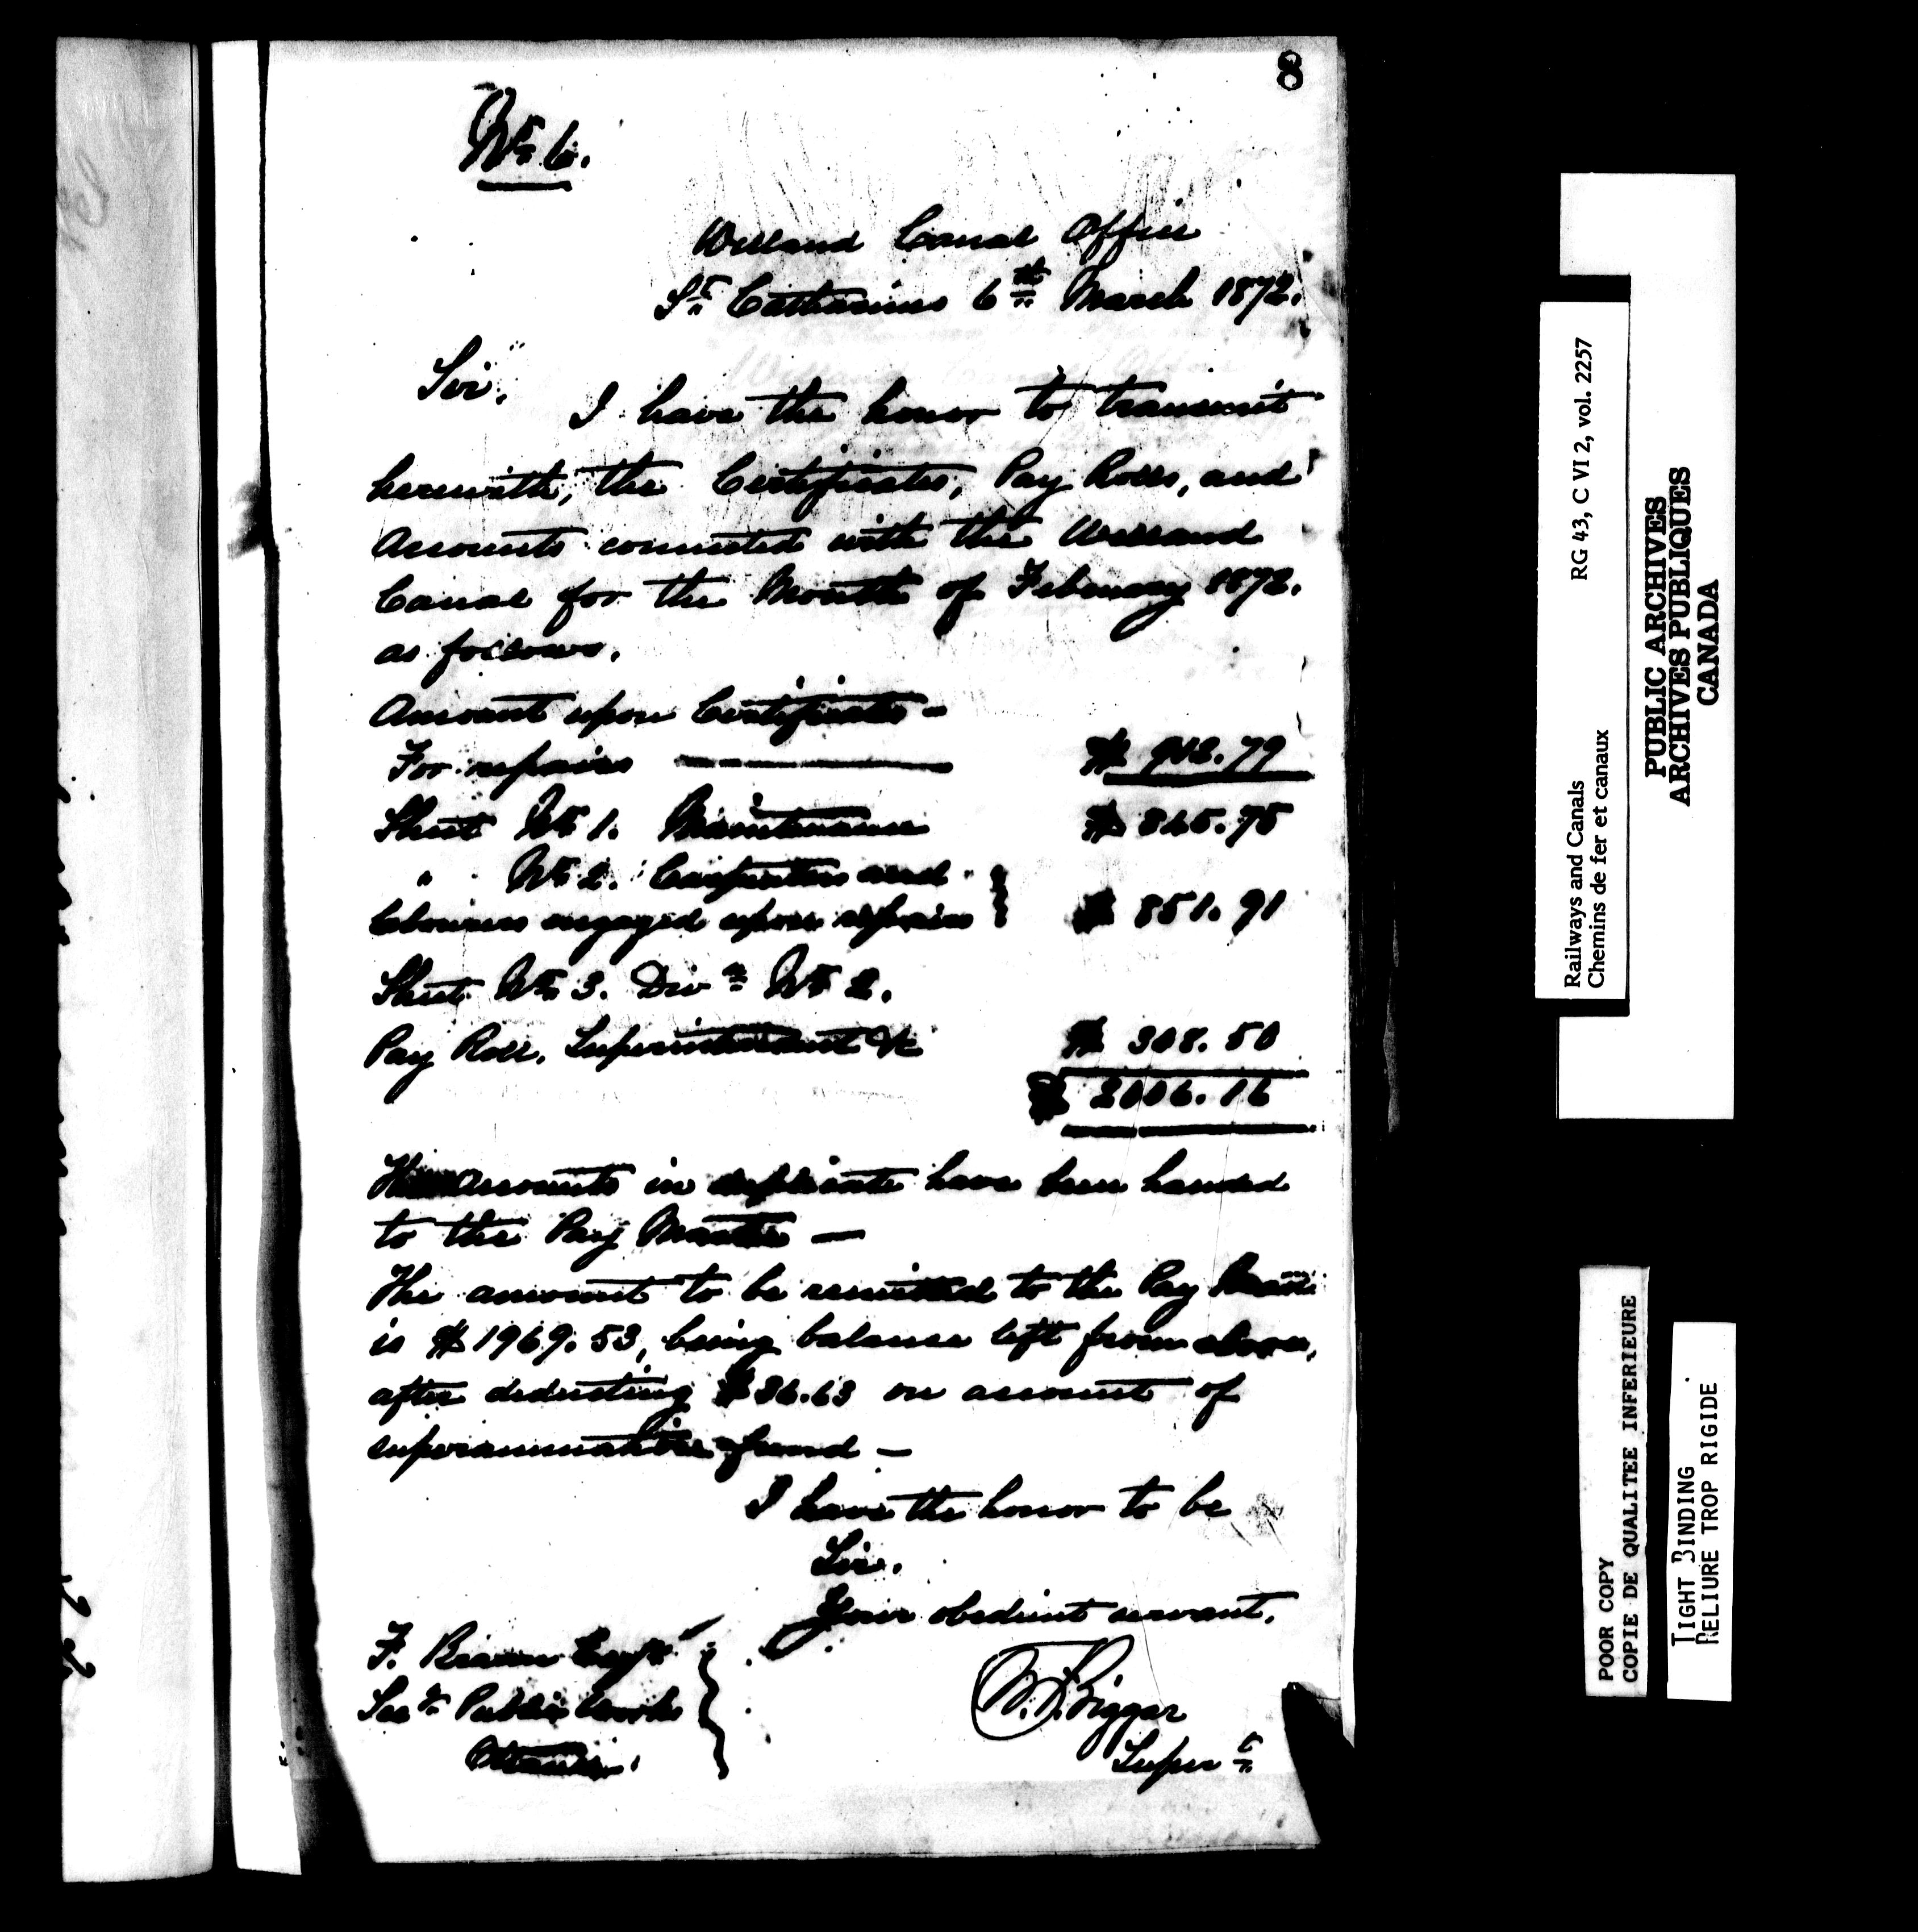 8
No 6.
Welland Canal Office
St Catharines 6th March 1872.
Sir,
I have the honor to transmit
herewith, the Certificates, Pay Rolls, and
Accounts connected with the Welland
Canal for the Month of February 1872.
as follows.
Amount upon Certificate —
For repairs $ 912.79
Sheet No 1. Maintenance $ 845.75
" No 2. Carpenters and
labourers engaged upon repairs } $ 851.91
Sheet No 3. Divn No 2.
Pay Roll. Superintendent &c $ 308.50
$ 2006.16
The Accounts in duplicate have been handed
to the Pay Master —
The amount to be remitted to the Pay
is $1969.53, being balance left from above,
after deducting $36.63 on account of
superannuation fund —
I have the honor to be
Sir.
Your obedient servant,
F. Braun Esqr
Secy Public Works
Ottawa.
Biggar
Supert
Railways and Canals RG 43, C VI 2, vol. 2257
Chemins de fer et canaux
PUBLIC ARCHIVES
ARCHIVES PUBLIQUES
CANADA
POOR COPY
COPIE DE QUALITEE INFERIEURE
TIGHT BINDING
RELIURE TROP RIGIDE